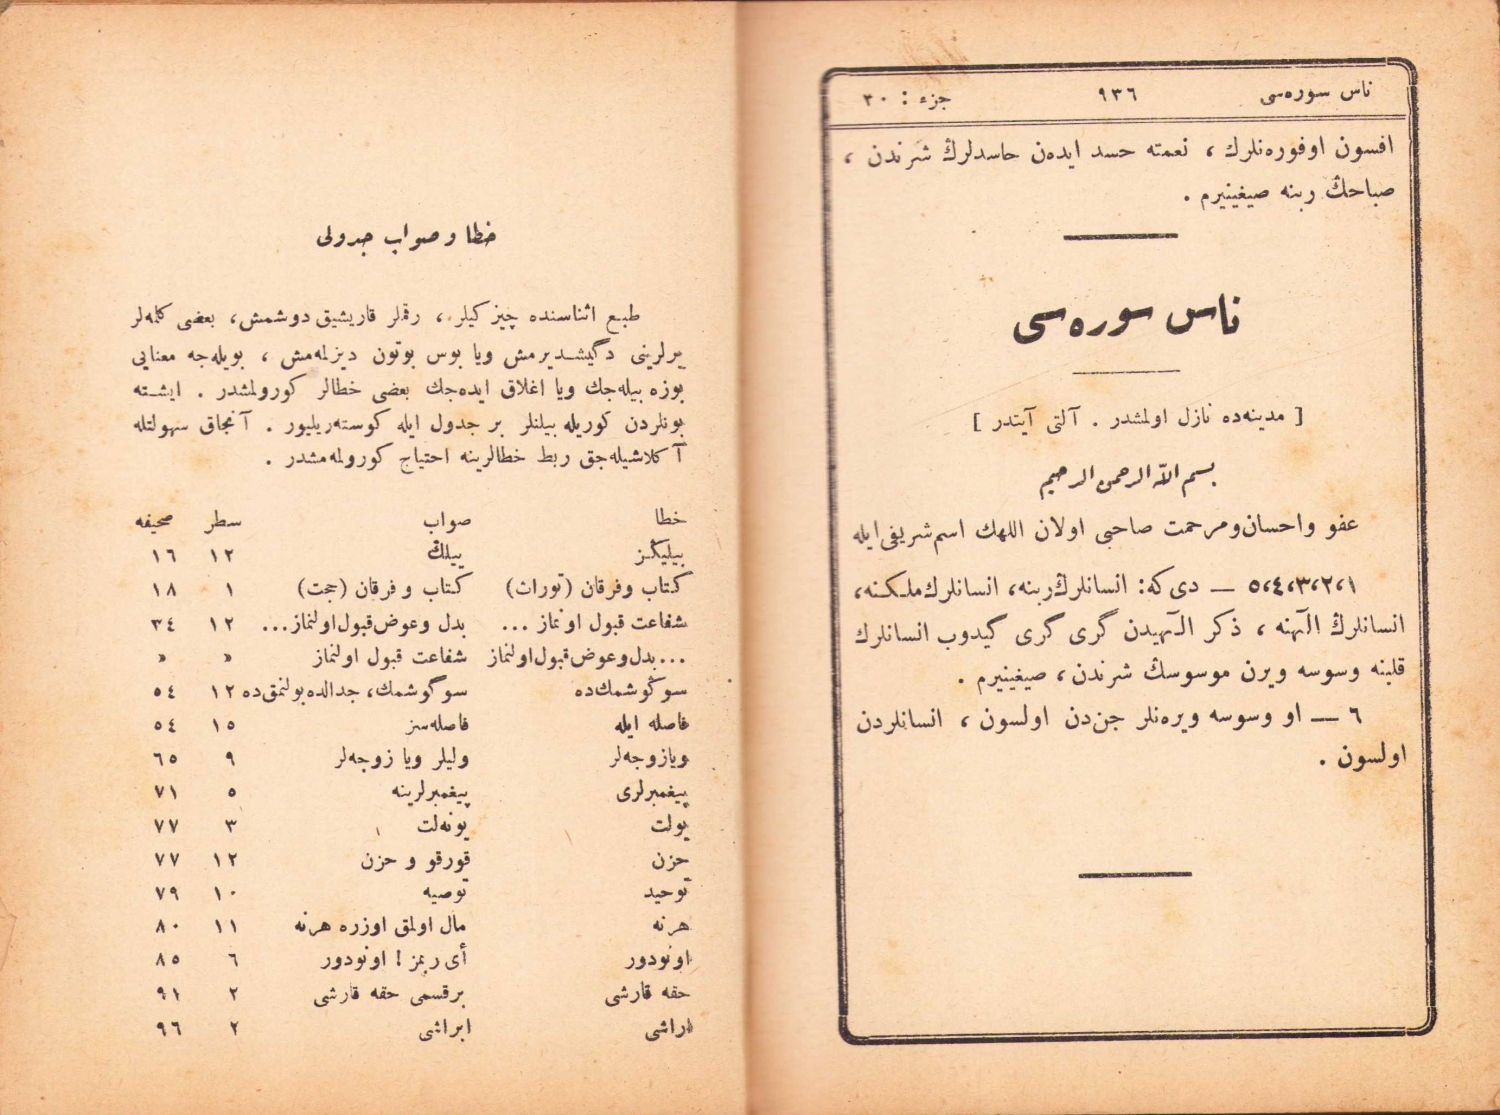 ناس سوره‌سی ٩٣٦ جزء : ٣٠
افسون اوفوره‌نلرك ، نعمته حسد ایده‌ن حاسدلرڭ شرندن ،
صباحڭ ربنه صیغینیرم .
ناس سوره‌سی
[ مدینه‌ده نازل اولمشدر . آلتی آیتدر ]
بسم الله الرحمن الرحیم
عفو واحسان‌ومرحمت صاحبی اولان اللهك اسم‌شریفی‌ایله
٥،٤،٣،٢،١ — دی‌که: انسانلرڭ‌ربنه، انسانلرك‌ملكنه،
انسانلرڭ الٓهنه ، ذكر الٓهیدن گری گری گیدوب انسانلرك
قلبنه وسوسه ویرن موسوسڭ شرندن، صیغینیرم .
٦ — او وسوسه ویره‌نلر جن‌دن اولسون ، انسانلردن
اولسون .
خطا و صواب جدولی
طبع اثناسنده چیزكیلر ، رقملر قاریشیق دوشمش، بعضی كلمه‌لر
یرلرینی دگیشدیرمش ویا بوس بوتون دیزلمه‌مش ، بویله‌جه معنایی
بوزه بیله‌جك ویا اغلاق ایده‌جك بعضی خطالر كورولمشدر . ایشته
بونلردن كوریله بیلنلر بر جدول ایله كوسته‌ریلیور . آنجاق سهولتله
آكلاشیله‌جق ربط خطالرینه احتیاج كورولمه‌مشدر .
خطا صواب سطر صحیفه
بیلیڭز ییلڭ ١٢ ١٦
كتاب وفرقان (تورات) كتاب و فرقان (حجت) ١ ١٨
شفاعت قبول اونماز ... بدل وعوض‌قبول‌اولنماز... ١٢ ٣٤
...بدل‌وعوض‌قبول‌اولنماز شفاعت قبول اولنماز » »
سوگوشمك‌ده سوگوشمك، جدالده‌بولنمق‌ده ١٢ ٥٤
فاصله ایله فاصله‌سز ١٥ ٥٤
ویازوجه‌لر ولیلر ویا زوجه‌لر ٩ ٦٥
پیغمبرلری پیغمبرلرینه ٥ ٧١
یولت یونه‌لت ٣ ٧٧
حزن قورقو و حزن ١٢ ٧٧
توحید توصیه ١٠ ٧٩
هرنه مال اولمق اوزره هرنه ١١ ٨٠
اونودور أی ربمز ! اونودور ٦ ٨٥
حقه قارشی برقسمی حقه قارشی ٢ ٩١
اراشی ابراشی ٢ ٩٦